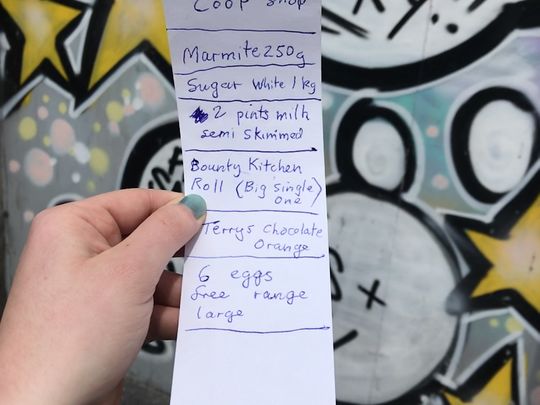 Coop shop
Marmite 250g
Sugar White 1kg
2 pints milk
semi skimmed
Bounty Kitchen
Roll (Big single)
one
Terrys Chocolate
Orange
6 eggs
free range
large